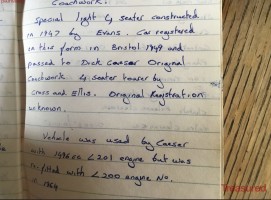 Coachwork.
Special light 4 seater constructed
in 1947 by Evans. Car registered
in this form in Bristol 1949 and
passed to Dick Caesar Original
Coachwork 4 seater tourer by
Cross and Ellis. Original Registration
unknown.
Vehicle was used by Caesar
with 1496cc L201 engine but was
re/fitted with L200 engine No.
in 1964
Treasured